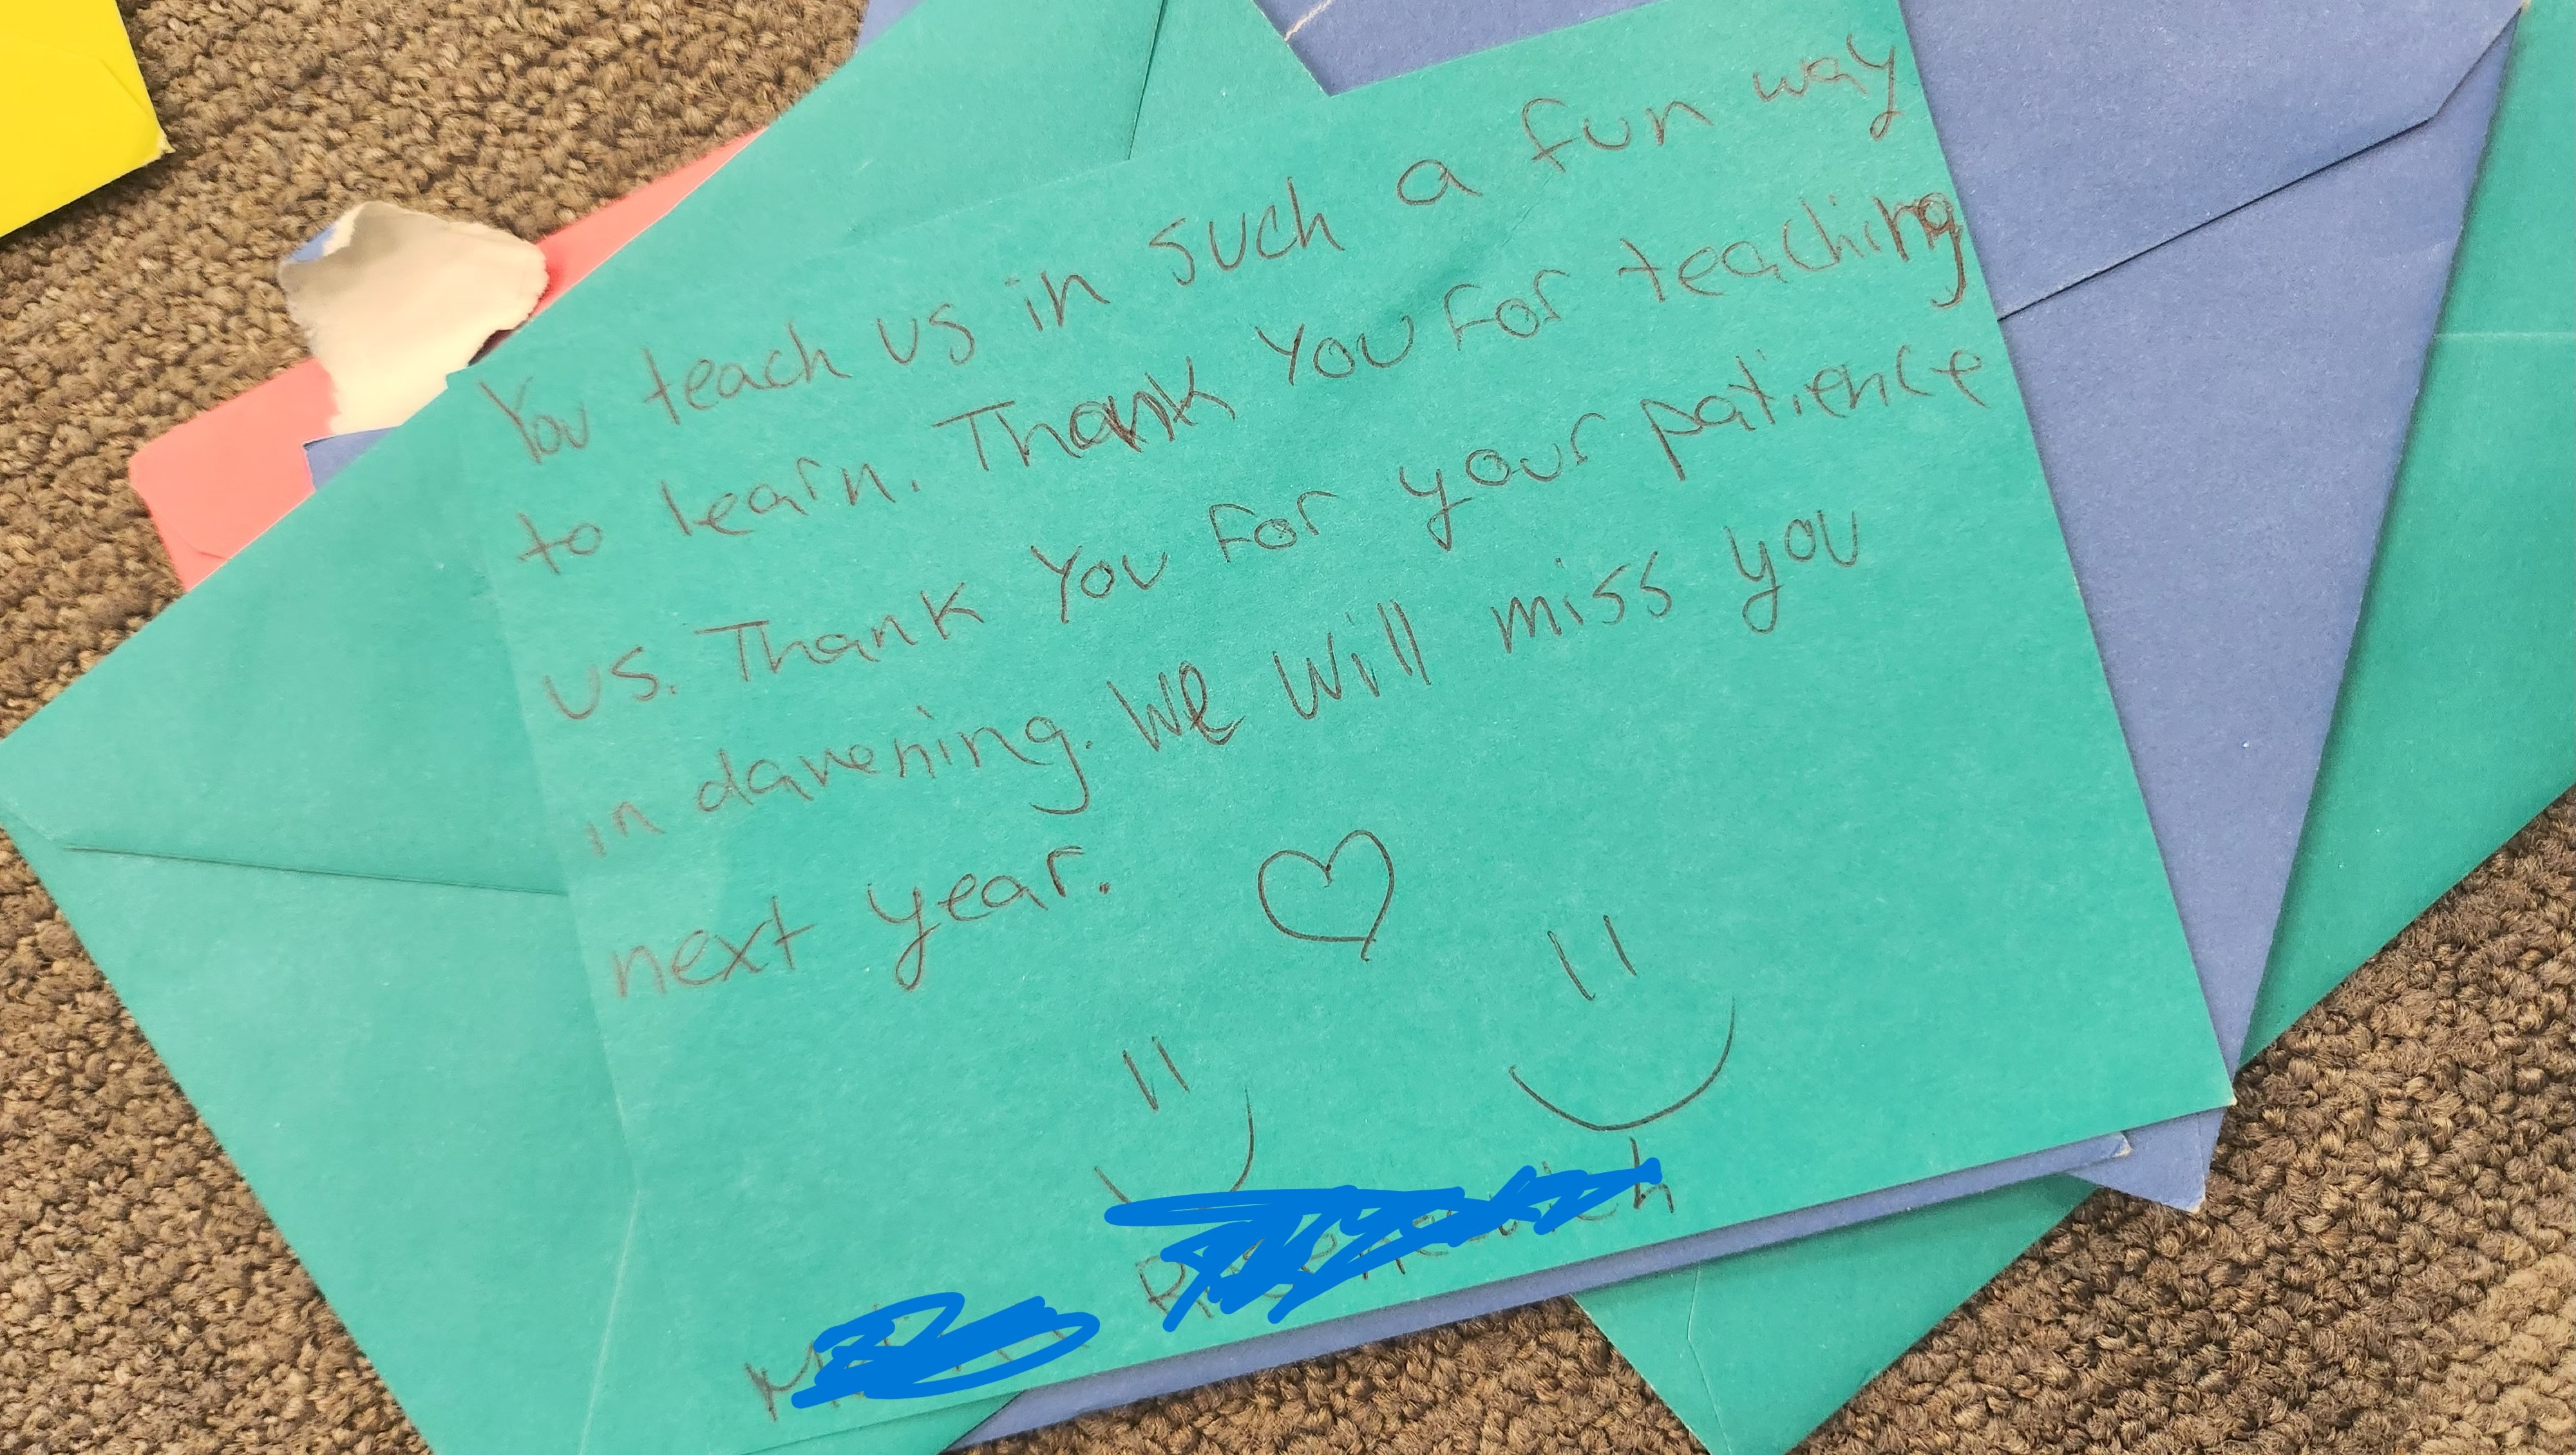 You teach us in such a fun way
to learn. Thank You For teaching
us. Thank You For your patience
in davening. We Will miss you
next year.